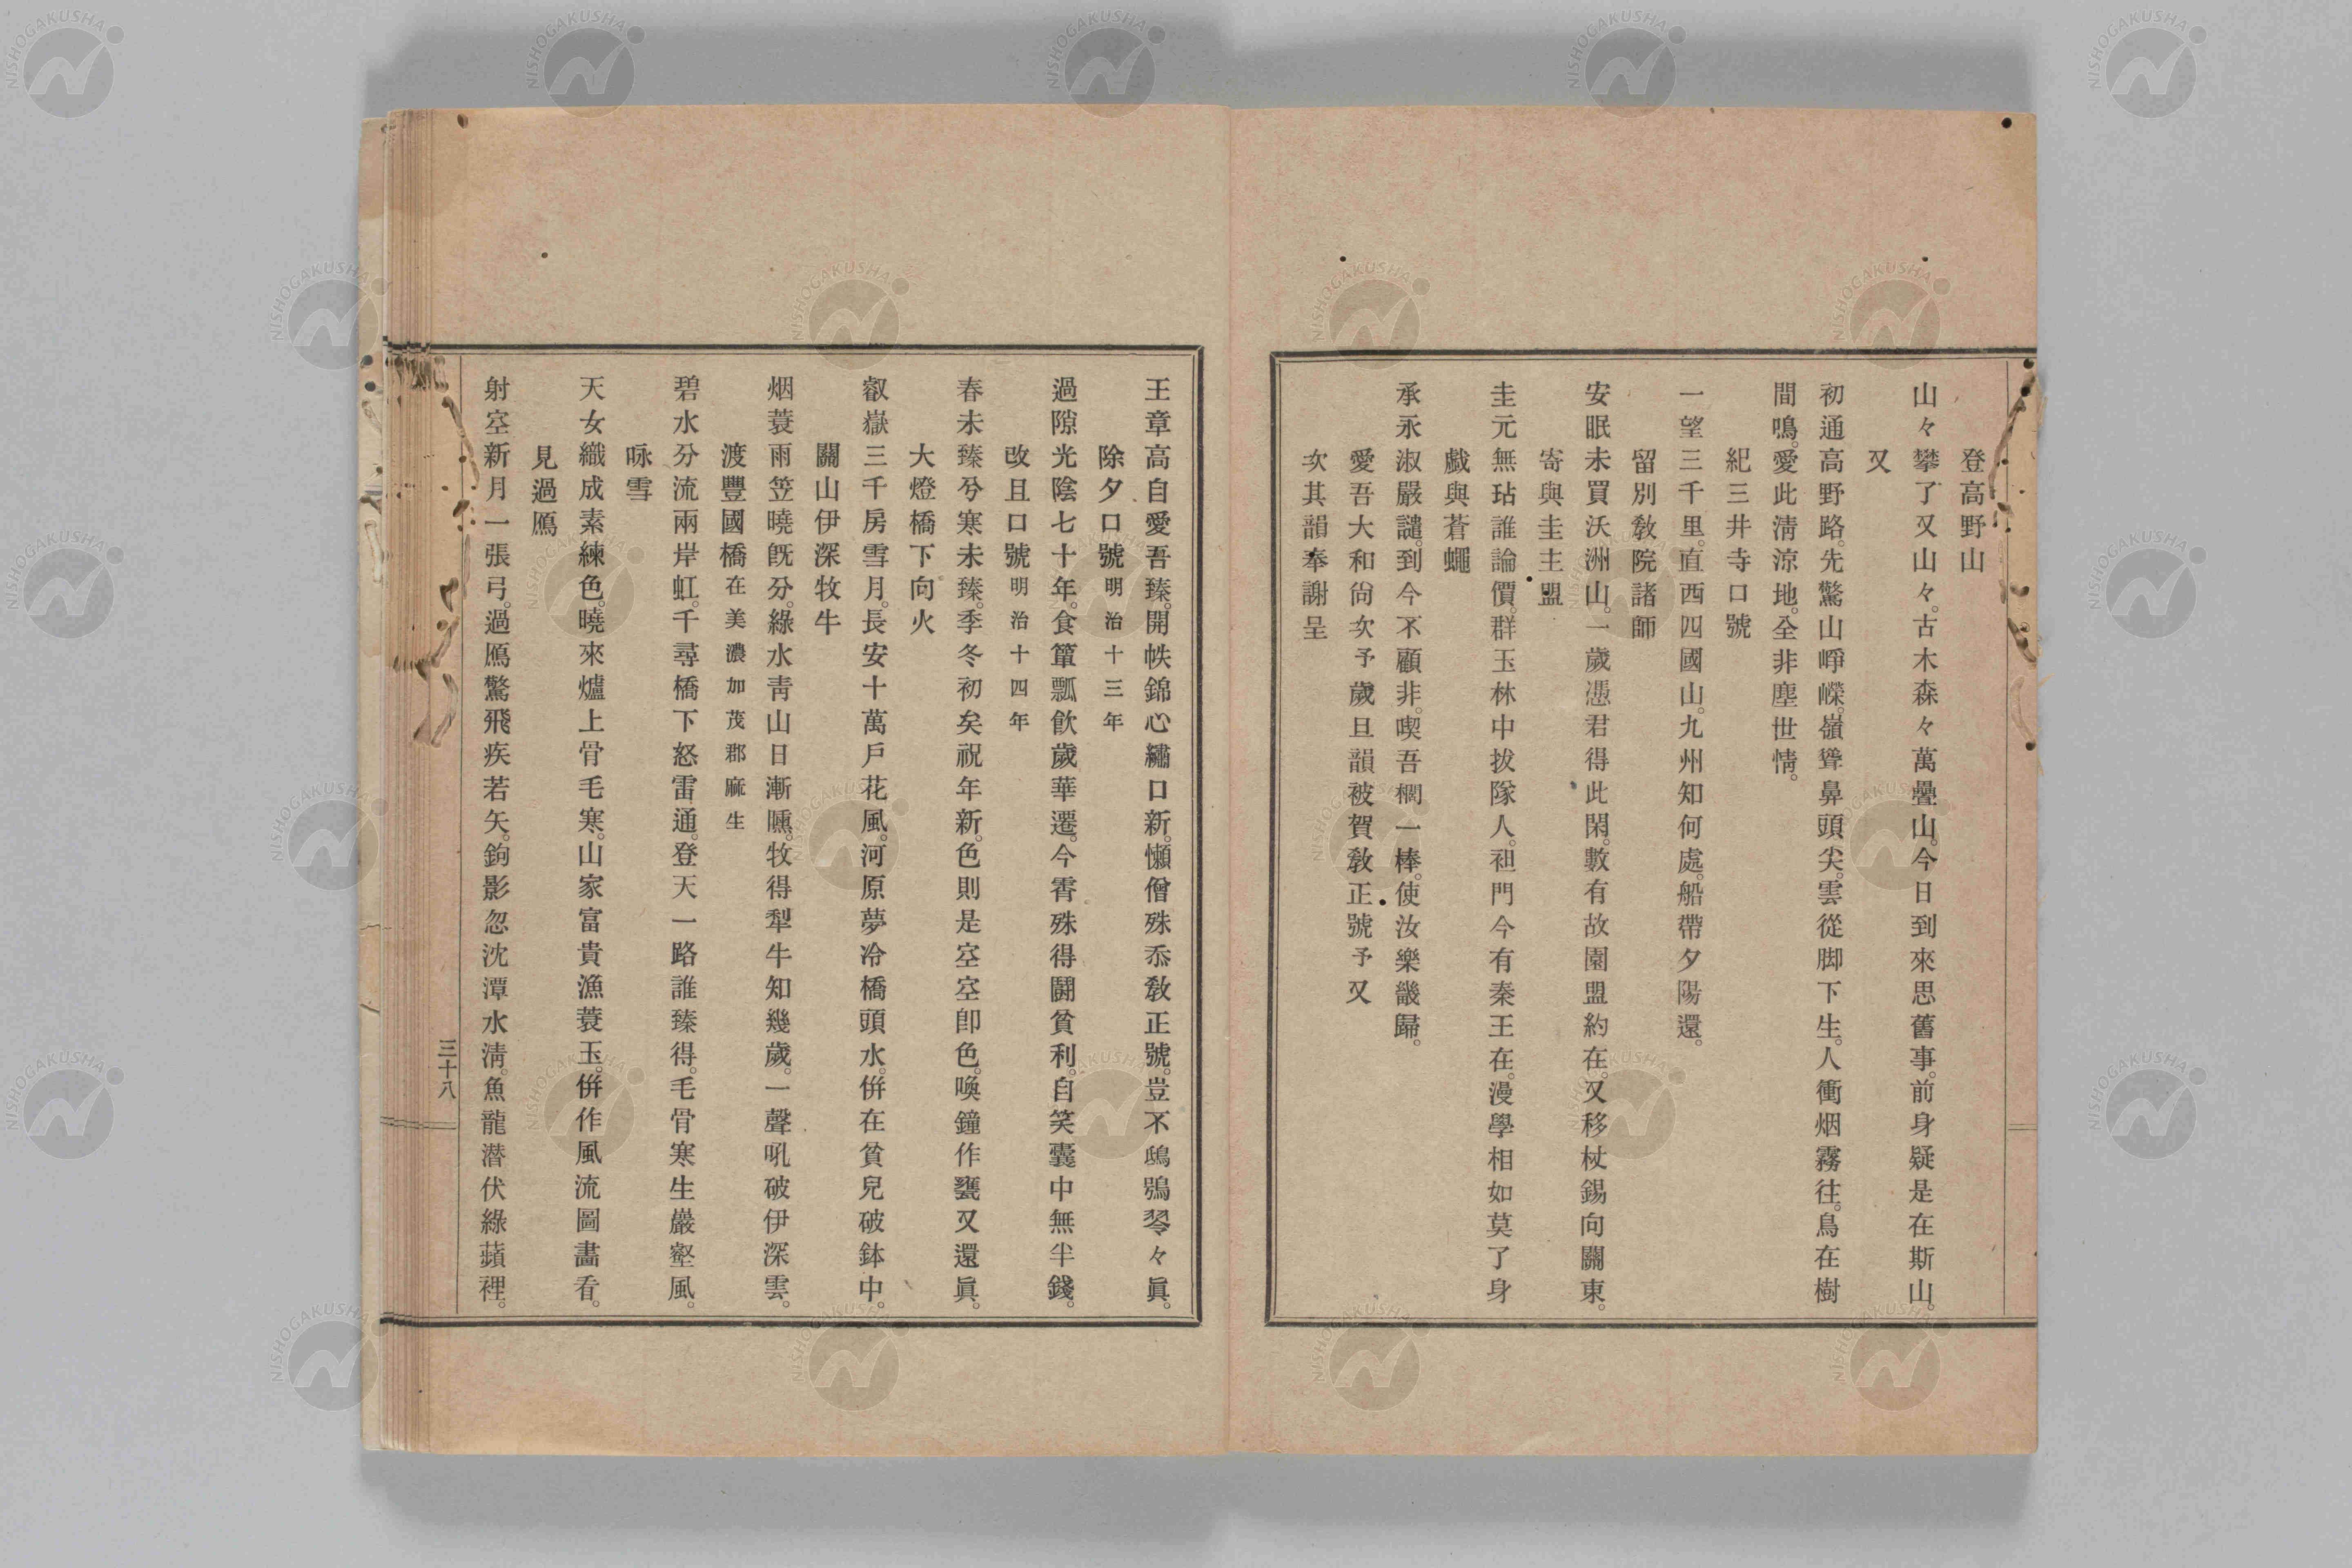 登高野山
山々攀了又山々。古木森々萬疊山。今日到來思舊事。前身疑是在斯山。
又
初通高野路。先驚山崢嶸。嶺聳鼻頭尖。雲從脚下生。人衝烟霧往。鳥在樹
間鳴。愛此淸涼地。全非塵世情。
紀三井寺口號
一望三千里。直西四國山。九州知何處。船帶夕陽還。
留別敎院諸師
安眠未買沃洲山。一歲憑君得此閑。數有故園盟約在。又移杖錫向關東。
寄與圭主盟
圭元無玷誰論價。群玉林中拔隊人。祖門今有秦王在。漫學相如莫了身
戲與蒼蠅
承永淑嚴譴。到今不顧非。喫吾櫚一棒。使汝樂畿歸。
愛吾大和尙次予歲旦韻被賀敎正號予又
次其韻奉謝呈
王章高自愛吾臻。開帙錦心繡口新。懶僧殊忝敎正號。豈不鴟鴞翏々眞。
除夕口號明治十三年
過隙光陰七十年。食簞瓢飮歲華遷。今霄殊得鬪貧利。自笑囊中無半錢。
改且口號明治十四年
春未臻兮寒未臻。季冬初矣祝年新。色則是空空卽色。喚鐘作甕又還眞。
大燈橋下向火
叡嶽三千房雪月。長安十萬戶花風。河原夢冷橋頭水。併在貧兒破鉢中。
關山伊深牧牛
烟蓑雨笠曉旣分。綠水靑山日漸曛。牧得犁牛知幾歲。一聲吼破伊深雲。
渡豐國橋在美濃加茂郡麻生
碧水分流兩岸虹。千尋橋下怒雷通。登天一路誰臻得。毛骨寒生巖壑風。
咏雪
天女織成素練色。曉來爐上骨毛寒。山家富貴漁蓑玉。併作風流圖畵看。
見過鴈
射空新月一張弓。過鴈驚飛疾若矢。鉤影忽沈潭水淸。魚龍潛伏綠蘋裡。
三十八